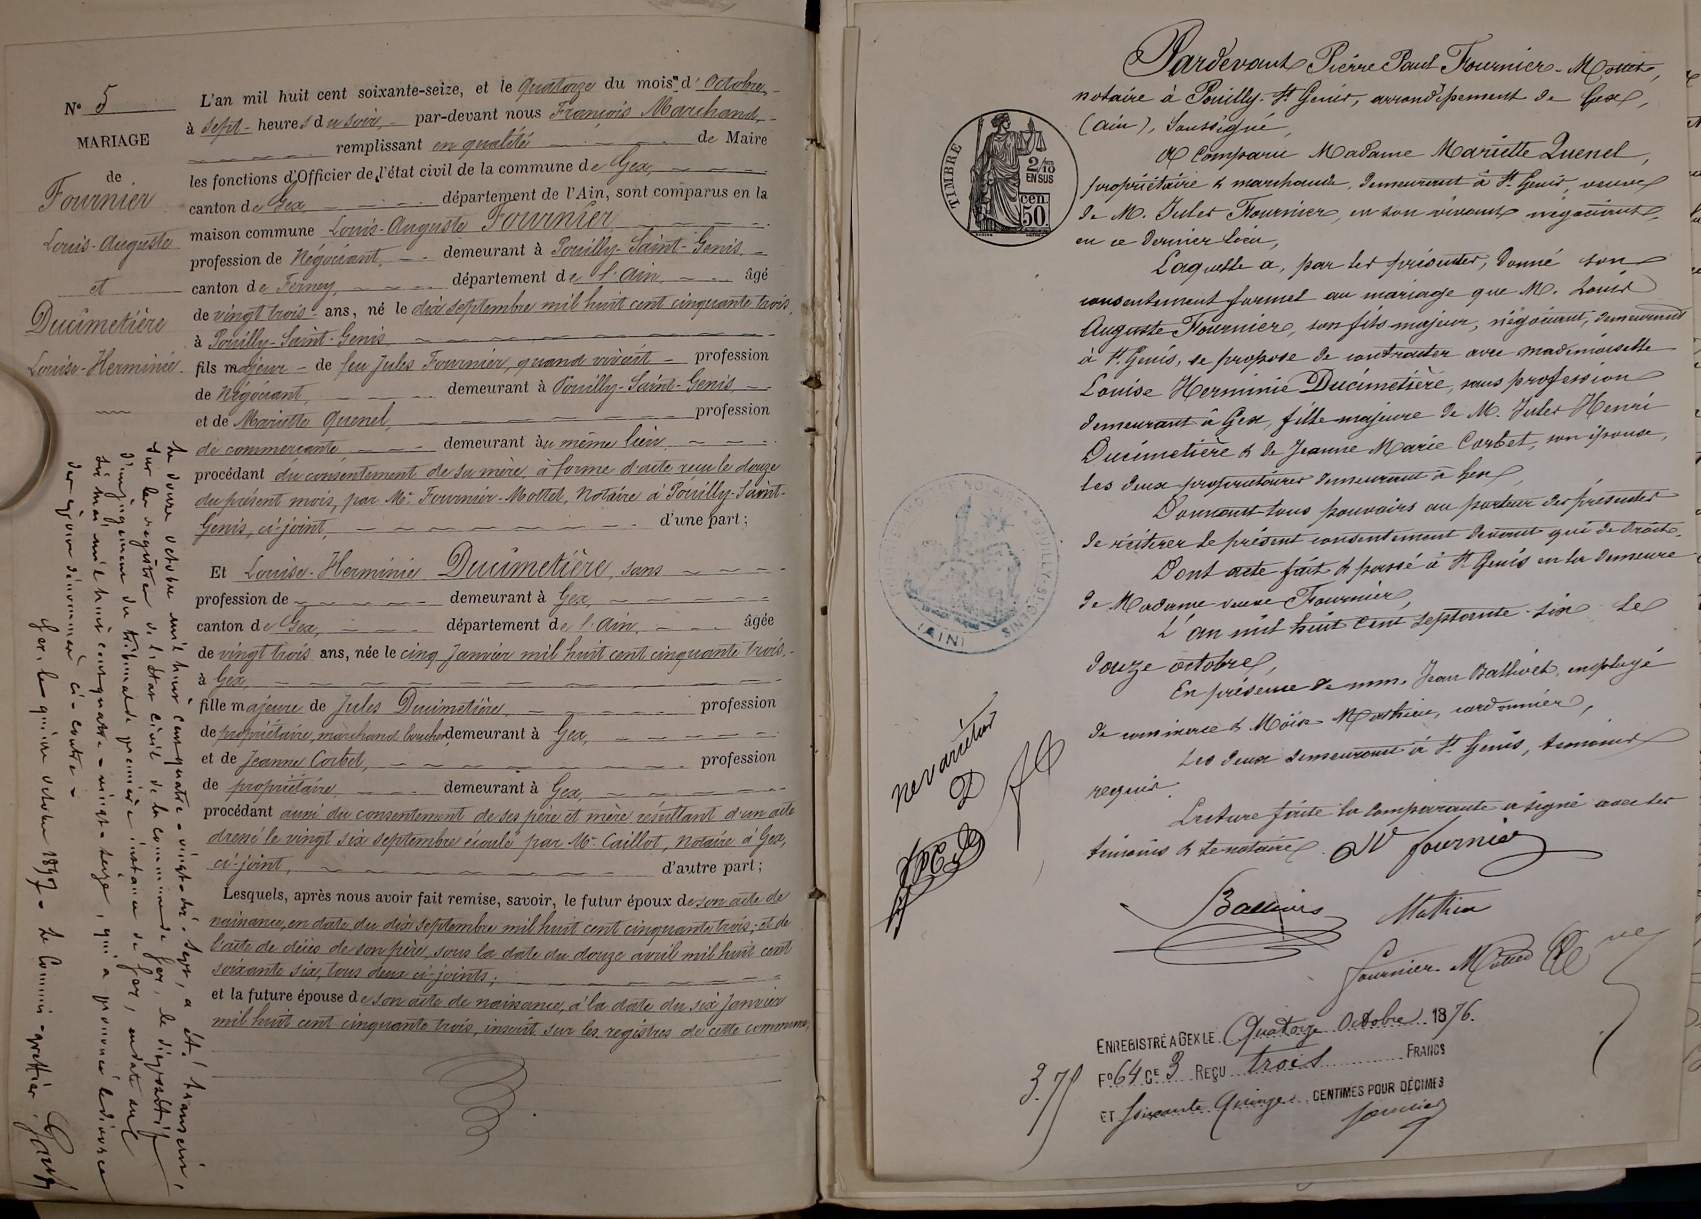 N° 5
MARIAGE
de
Fournier
Louis-Auguste
et
Ducimetière
Louise-Herminie
L'an mil huit cent soixante-seize, et le quatorze du mois d'octobre,
à sept heures du soir, par-devant nous François Marchand,
remplissant en qualité de Maire
les fonctions d'Officier de l'état civil de la commune de Gex,
canton de Gex, département de l'Ain, sont comparus en la
maison commune Louis-Auguste Fournier
profession de Négociant, demeurant à Pouilly-Saint-Genis
canton de Ferney, département de l'Ain, âgé
de vingt trois ans, né le dix septembre mil huit cent cinquante trois,
à Pouilly-Saint-Genis
fils majeur de feu Jules Fournier, quand vivait profession
de Négociant, demeurant à Pouilly-Saint-Genis
et de Mariette Quenel, profession
de commerçante, demeurant au même lieu
procédant du consentement de sa mère, à forme d'acte reçu le douze
du présent mois, par Me Fournier-Mottet, Notaire à Pouilly-Saint-
Genis, ci-joint, d'une part;
Et Louise-Herminie Ducimetière, sans
profession de demeurant à Gex
canton de Gex, département de l'Ain, âgée
de vingt trois ans, née le cinq Janvier mil huit cent cinquante trois,
à Gex,
fille majeure de Jules Ducimetière, profession
de propriétaire, marchand boucher, demeurant à Gex,
et de Jeanne Corbet, profession
de propriétaire, demeurant à Gex,
procédant aussi du consentement de ses père et mère, résultant d'un acte
dressé le vingt six septembre écoulé par Me Caillot, notaire à Gex,
ci-joint, d'autre part;
Lesquels, après nous avoir fait remise, savoir, le futur époux de son acte de
naissance, en date du dix septembre mil huit cent cinquante trois; et de
l'acte de décès de son père, sous la date du douze avril mil huit cent
soixante six, tous deux ci-joints;
et la future épouse de son acte de naissance, à la date du six Janvier
mil huit cent cinquante trois, inscrit sur les registres de cette commune,
Le douze octobre mil huit cent quatre-vingt-dix-sept, a été transcrit,
sur les registres de l'état civil de la commune de Gex, le dispositif
d'un jugement du tribunal de première instance de Gex, en date du
dix mai mil huit cent quatre-vingt-seize, qui a prononcé le divorce
des époux dénommés ci-contre.
Gex, le quinze octobre 1897. Le Commis-greffier,
Pardevant Pierre Paul Fournier-Mottet,
notaire à Pouilly-St Genis, arrondissement de Gex,
(Ain), soussigné,
A comparu Madame Mariette Quenel,
propriétaire & marchande, demeurant à St Genis, veuve
de M. Jules Fournier, en son vivant négociant
en ce dernier lieu,
Laquelle a, par les présentes, donné son
consentement formel au mariage que M. Louis
Auguste Fournier, son fils majeur, négociant, demeurant
à St Genis, se propose de contracter avec mademoiselle
Louise Herminie Ducimetière, sans profession
demeurant à Gex, fille majeure de M. Jules Henri
Ducimetière & de Jeanne Marie Corbet, son épouse,
les deux propriétaires demeurant à Gex,
Donnant tous pouvoirs au porteur des présentes
de réitérer le présent consentement devant qui de droit.
Dont acte fait & passé à St Genis en la demeure
de Madame veuve Fournier,
L'an mil huit cent septante-six le
douze octobre,
En présence de mm. Jean Ballivet, employé
de commerce & Moïse Mathieu, cordonnier,
Les deux demeurant à St Genis, témoins
requis.
Lecture faite la comparante a signé avec les
témoins & le notaire. Ve fournier
Mathieu
Fournier-Mottet
TIMBRE
2/10
EN SUS
50 cen.
POUILLY-ST-GENIS
(AIN)
ne varietur
ENREGISTRÉ A GEX LE Quatorze Octobre 1876.
F° 64 Ce 3 REÇU trois FRANCS
ET soixante Quinze CENTIMES POUR DÉCIMES
3.75